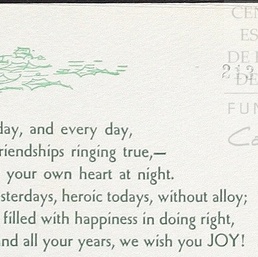 CEN
ES
DE
212
DE
FUN
day, and every day,
riendships ringing true,—
your own heart at night.
sterdays, heroic todays, without alloy;
filled with happiness in doing right,
nd all your years, we wish you JOY!